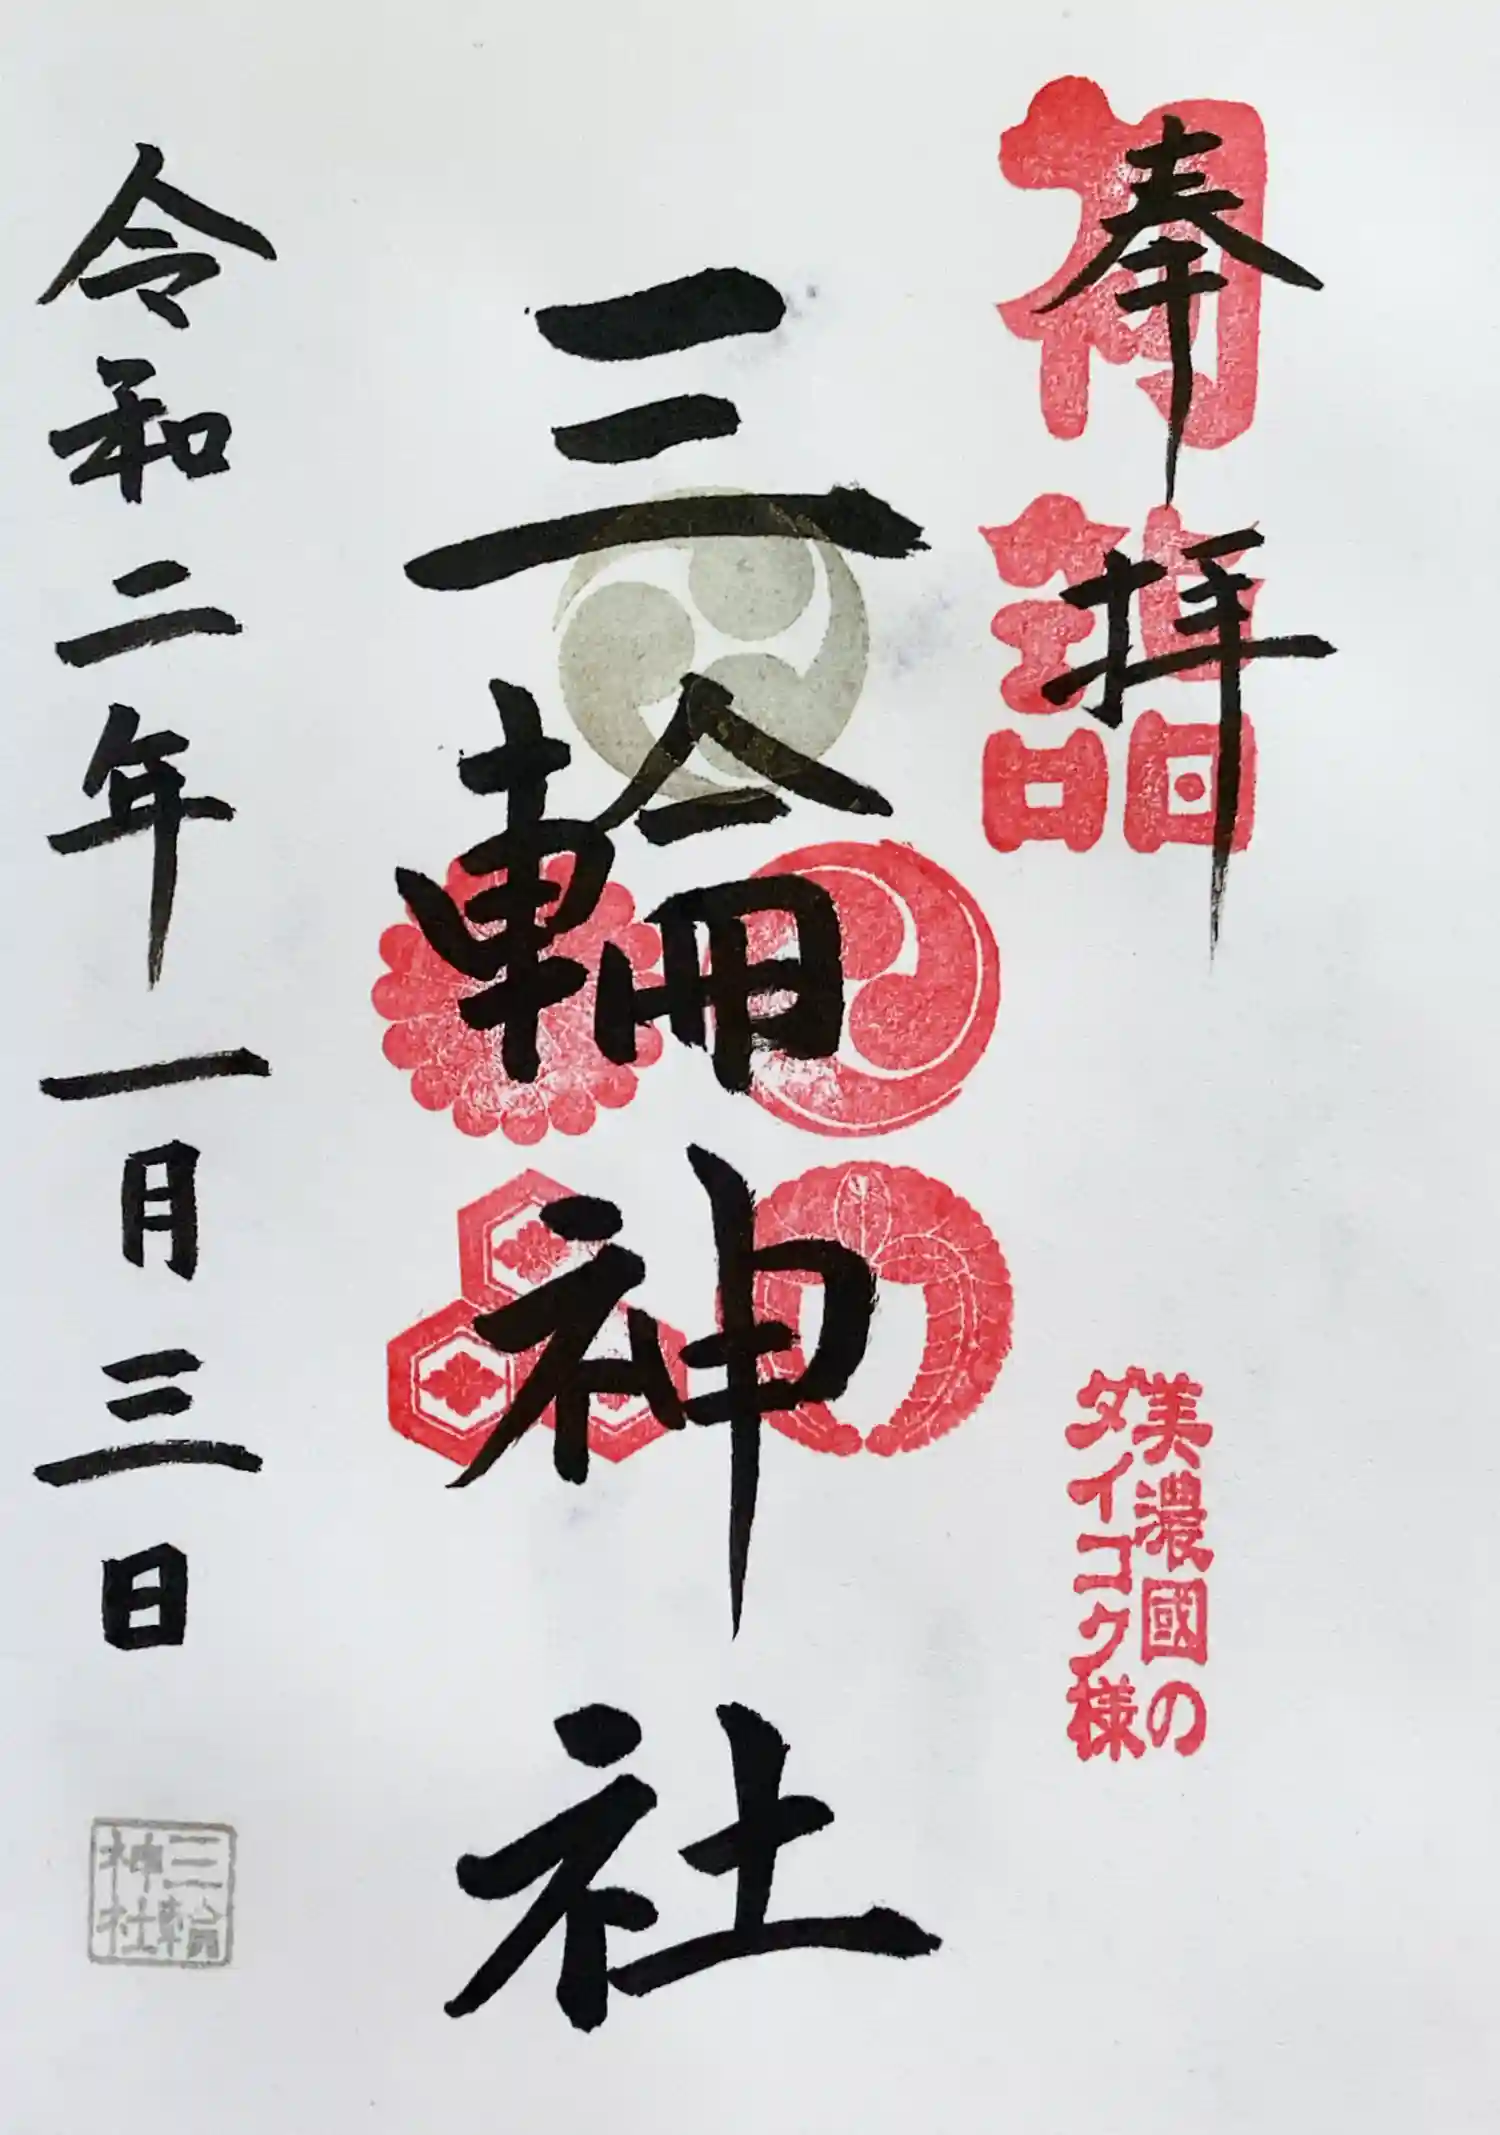 奉拝
初詣
美濃國の
ダイコク様
三輪神社
令和二年一月三日
三輪
神社